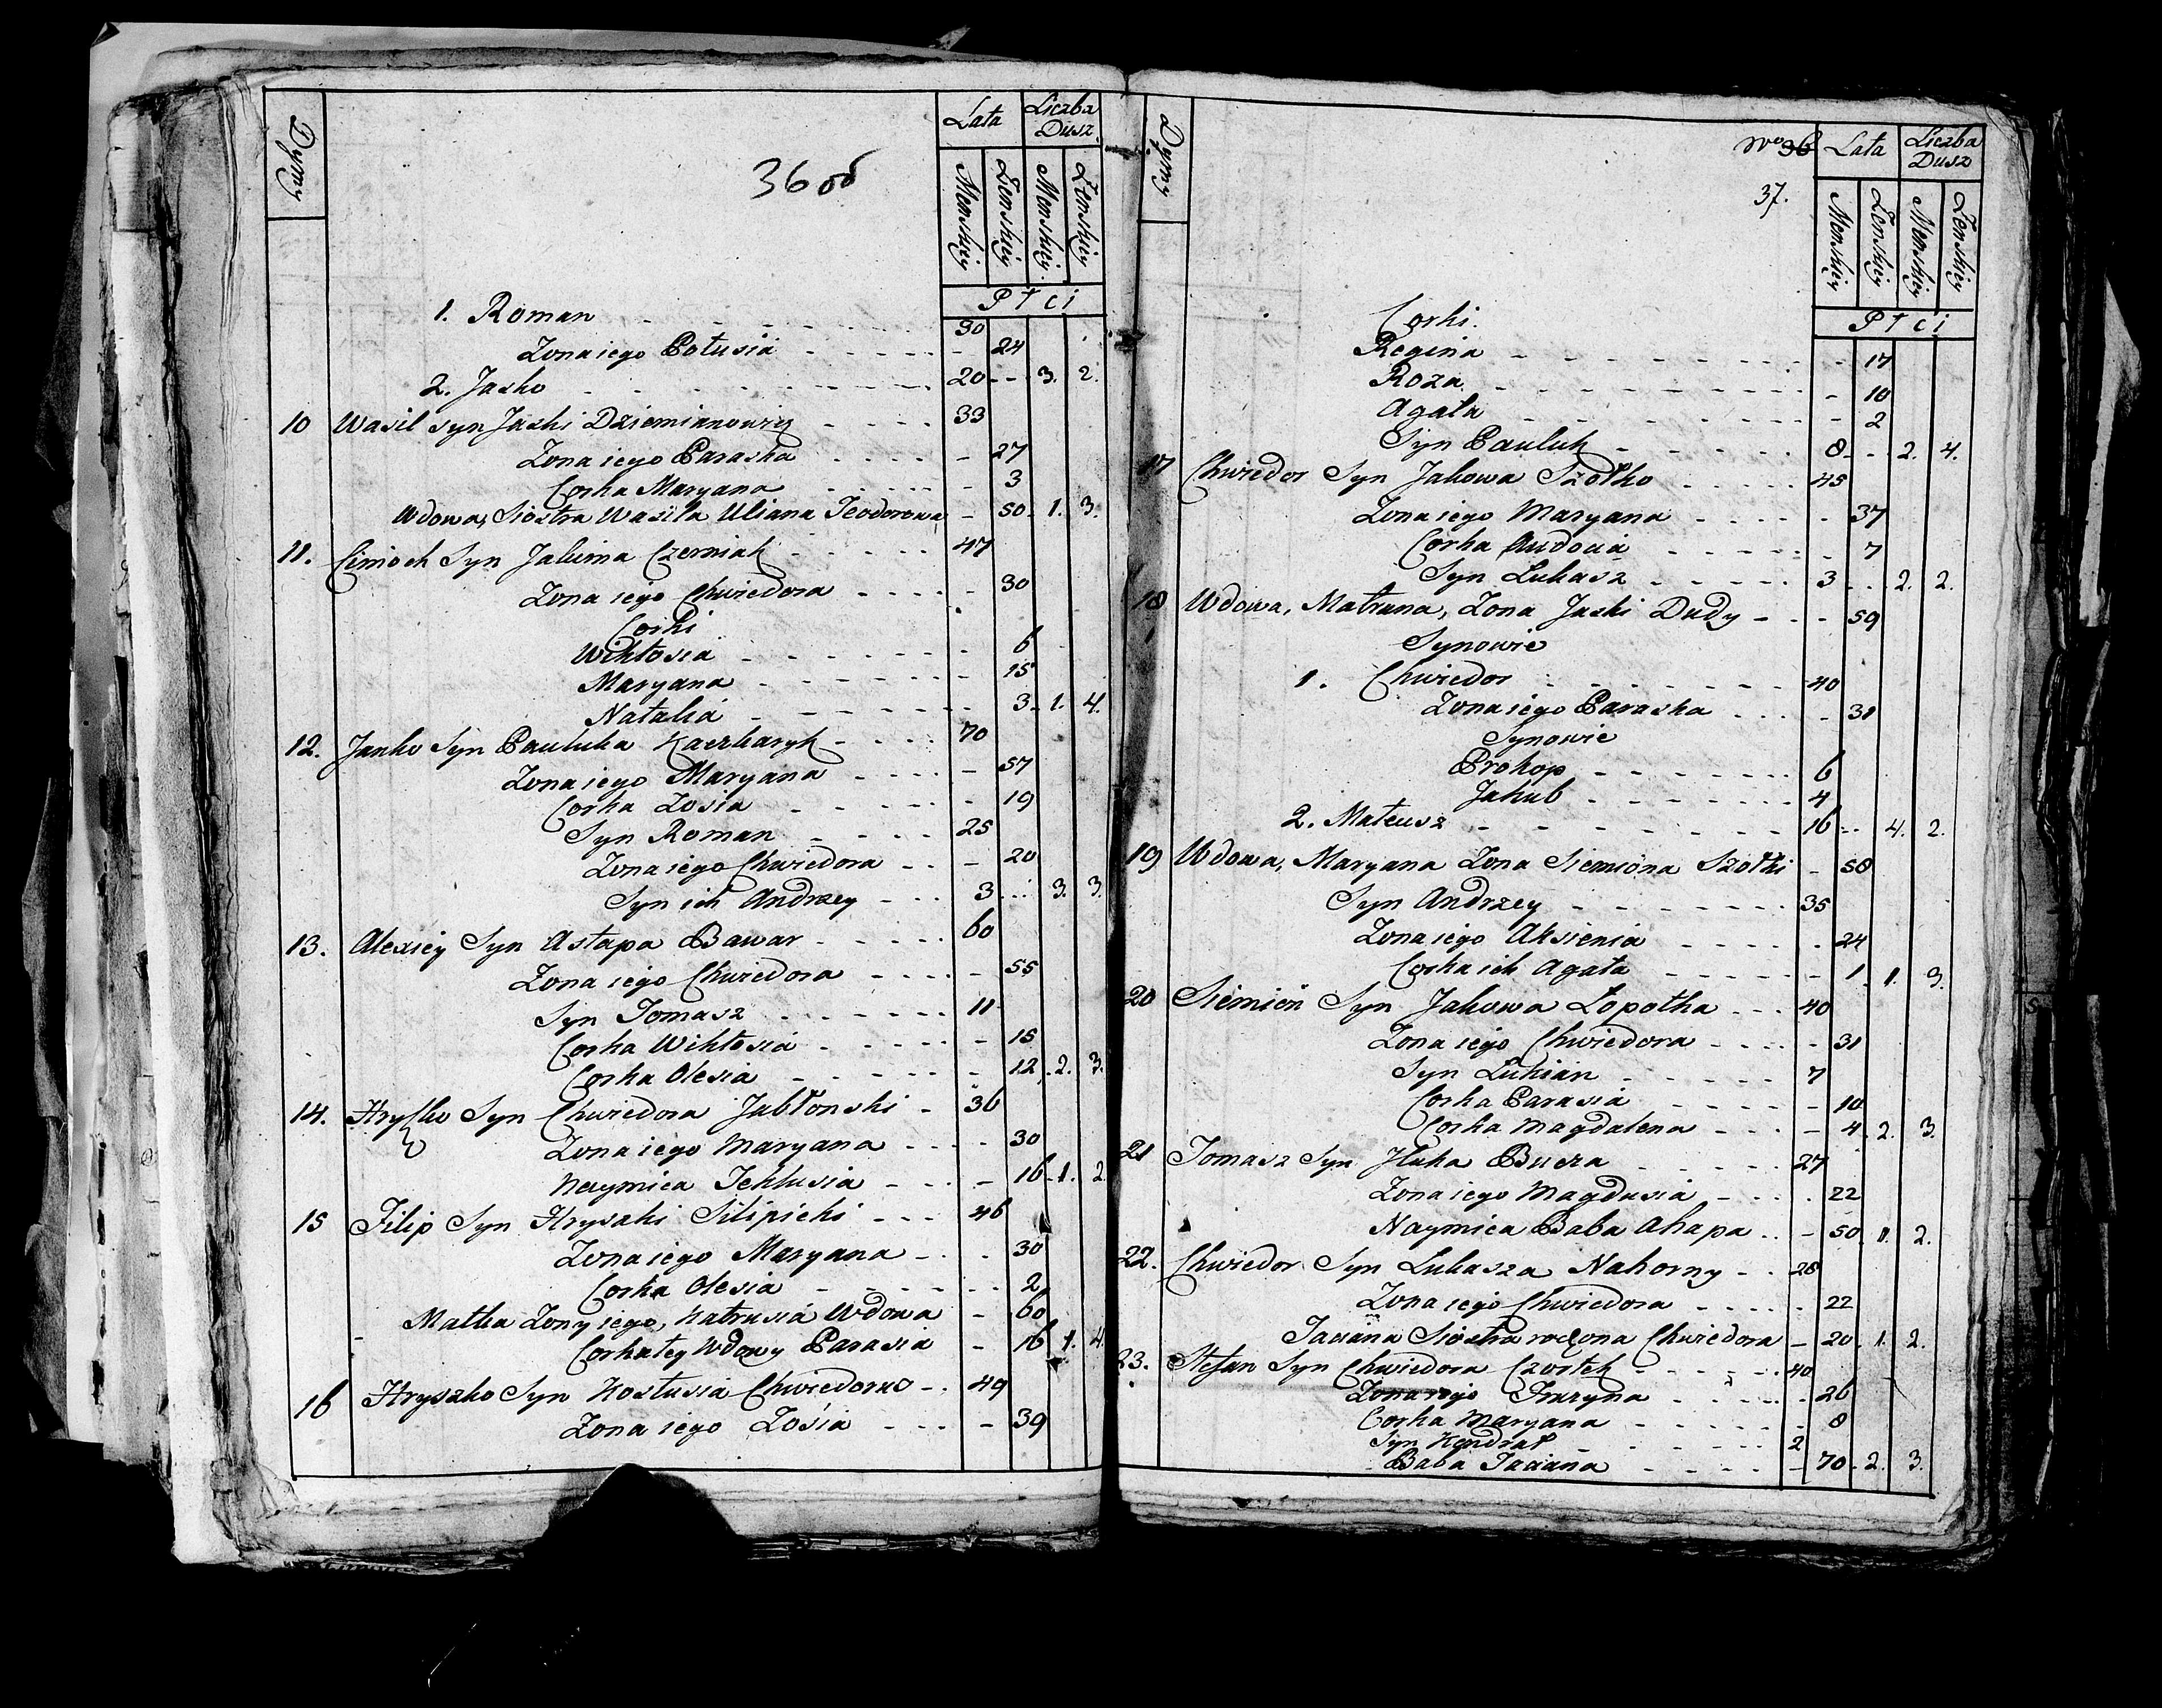 Dymy
Lata
Liczba Dusz
36 об
Menskiey
Żenskiey
Menskiey
Żenskiey
Płci
1. Roman 30
Zona iego Połusia 24
2. Jasko 20 3. 2.
10 Wasil syn Jaski Dziemianowicz 33
Zona iego Paraska 27
Corka Maryana 3
Wdowa, Siostra Wasila Uliana Teodorowa 50. 1. 3.
11. Cimoch Syn Jakima Czerniak 47
Zona iego Chwiedora 30
Corki
Wiktosia 6
Maryana 15
Natalia 3. 1. 4.
12. Janko Syn Pauluka Kaczkaryk 70
Zona iego Maryana 57
Corka Zosia 19
Syn Roman 25
Zona iego Chwiedora 20
Syn ich Andrzey 3 3. 3.
13. Alexiey Syn Astapa Bawar 60
Zona iego Chwiedora 55
Syn Tomasz 11
Corka Wiktosia 15
Corka Olesia 12. 2. 3.
14. Hryſko Syn Chwiedora Jabłonski 36
Zona iego Maryana 30
Naymica Teklusia 16. 1. 2
15 Filip Syn Hryszki Silipicki 46
Zona iego Maryana 30
Corka Olesia 2
Matka Zony iego, Katrusia Wdowa 60
Corka tey Wdowy Parasia 16 1. 4.
16 Hryszko Syn Kostusia Chwiedoruk 49
Zona iego Zosia 39
Dymy
No 36
37.
Lata
Liczba Dusz
Menskiey
Żenskiey
Menskiey
Żenskiey
Płci
Corki.
Regina 17
Roza 10
Agata 2
Syn Pauluk 8 2. 4.
17 Chwiedor Syn Jakowa Szołko 45
Zona iego Maryana 37
Corka Audocia 7
Syn Lukasz 3 2. 2.
18 Wdowa, Matruna, Zona Jaski Dudy 59
Synowie
1. Chwiedor 40
Zona iego Paraska 31
Synowie
Prokop 6
Jakub 4
2. Mateusz 16 4. 2.
19 Wdowa, Maryana Zona Siemiona Szołki 58
Syn Andrzey 35
Zona iego Aksienia 24
Corka ich Agata 1. 1. 3.
20 Siemion Syn Jakowa Łopotka 40
Zona iego Chwiedora 31
Syn Lukian 7
Corka Parasia 10
Corka Magdalena 4. 2. 3.
21 Tomasz Syn Jluka Bucza 27
Zona iego Magdusia 22
Naymica Baba Ahapa 50. 1. 2.
22. Chwiedor Syn Lukasza Nahorny 28
Zona iego Chwiedora 22
Taciana Siostra rodzona Chwiedora 20. 1. 2.
23. Stefan Syn Chwiedora Czortek 40
Zona iego Fruzyna 26
Corka Maryana 8
Syn Kondrat 2
Baba Taciana 70. 2. 3.